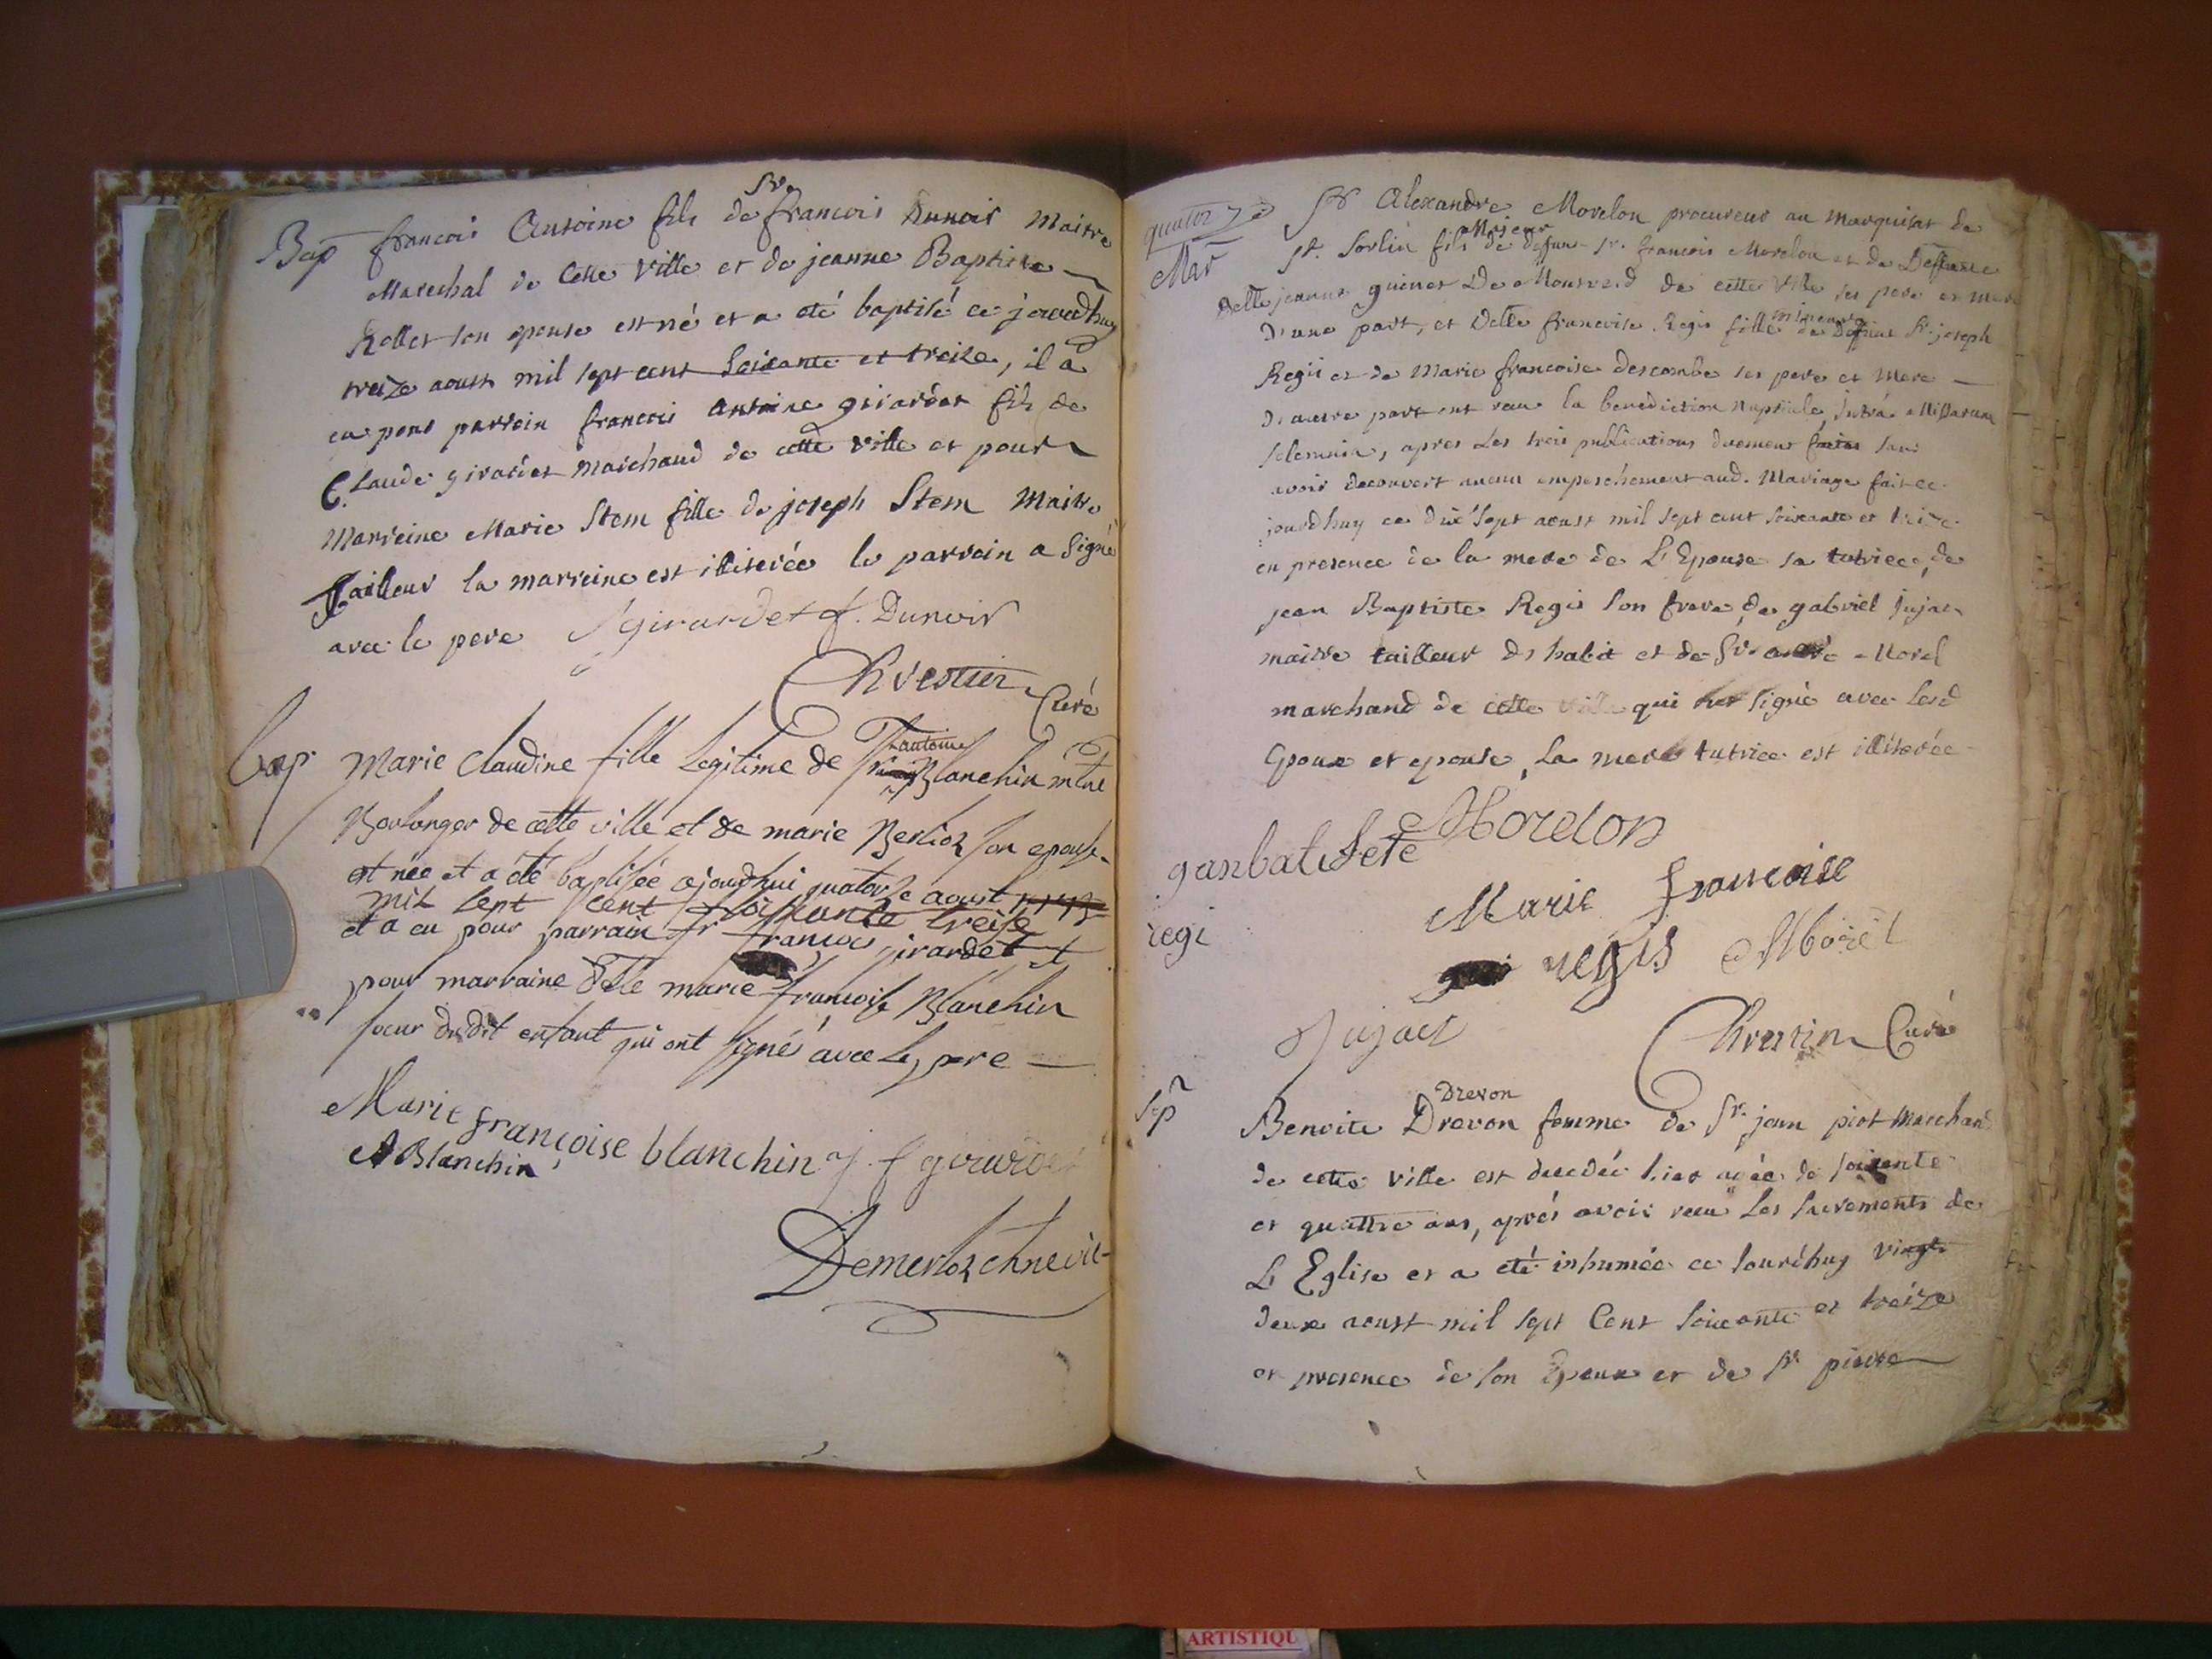 Bap françois Antoine fils de Sr françois Dunoir Maitre
Marechal de Cette Ville et de jeanne Baptiste
Rollet son epouse est né et a eté baptisé ce jourdhuy
treize aoust mil sept cent soixante et treize, il a
eu pour parrein françois Antoine girardet fils de
Claude girardet Marchand de cette Ville et pour
Marreine Marie Stem fille de joseph Stem Maitre
Tailleur la marreine est illiterée le parrein a Signé
avec le pere girardet f. Dunoir
Curé
bap Marie Claudine fille Legitime de Sr antoine Blanchin mtre
Boulanger de cette ville et de marie Berlioz son epouse
est née et a été baptisée ajourdhui quatorze aoust 1773
mil sept cent soixante treise
et a eu pour parrain Sr françois girardet et
pour marraine Delle marie françoise Blanchin
soeur dudit enfant qui ont signé avec le pere
Marie françoise blanchin j. f girardet
A Blanchin
quatorze
Mar Sr Alexandre Morelon procureur au Marquisat de
St. Sorlin fils Majeur de deffunt Sr. françois Morelon et de Deffunte
Delle jeanne guinet De Montverd de cette Ville ses pere et mere
d'une part, et Delle françoise Regis fille mineure de Deffunt Sr. joseph
Regis et de Marie francoise descombe ses pere et Mere
d'autre part ont recu la benediction Nuptiale, intra Missarum
solemnia, apres Les trois publications duement faites sans
avoir decouvert aucun empeschement aud. Mariage fait ce
jourdhuy ce dix sept aoust mil sept cent soixante et treize
en presence de la mere de L'Epouse sa tutrice, de
jean Baptiste Regis son frere, de gabriel Jujat
maitre tailleur d'habit et de Sr. Morel
marchand de cette ville qui ont signé avec Lesd
Epoux et epouse, La mere tutrice est illiterée
Morelon
ganbatiste
regi
Marie francoise
regis Morel
Jujat Curé
Sep
Drevon
Benoite Drevon femme de Sr. jean piot Marchand
de cette Ville est decedée hier agée de soixante
et quattre ans, aprés avoir recu Les Sacrements de
L'Eglise et a eté inhumée ce jourdhuy vingt
deux aoust mil sept Cent soixante et treize
en presence de son Epoux et de Sr pierre
ARTISTIQU